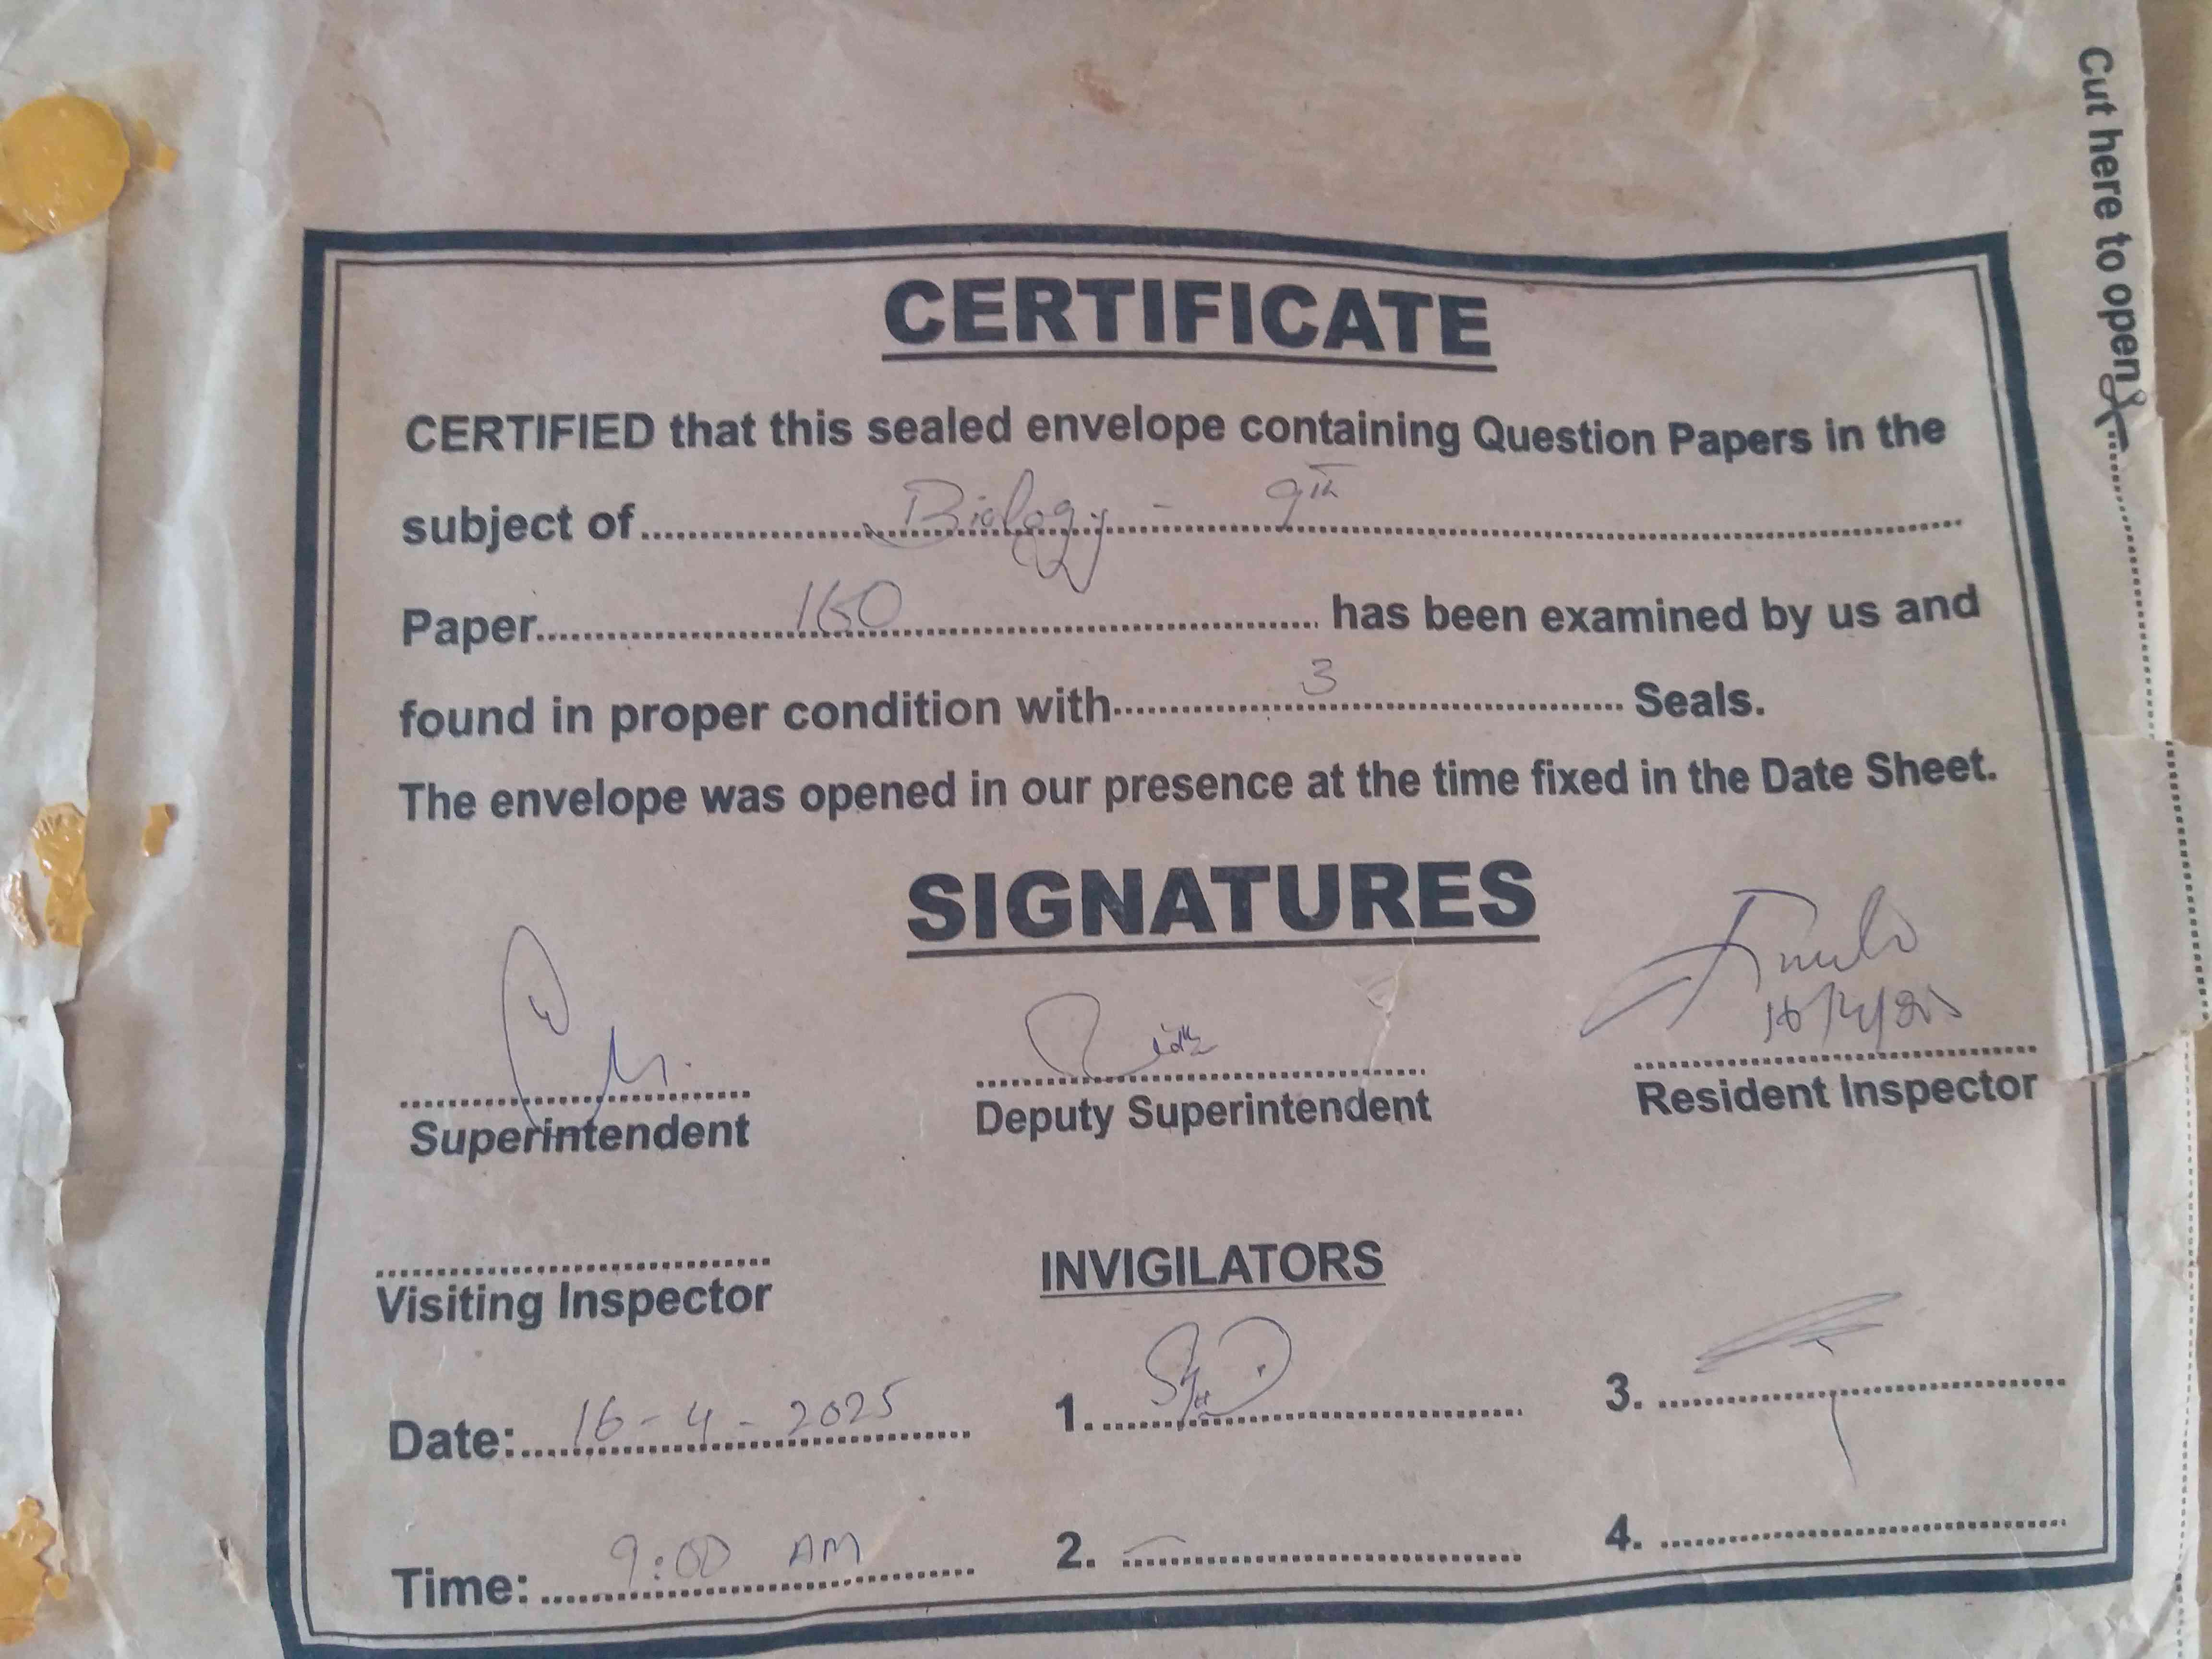 Cut here to open
CERTIFICATE
CERTIFIED that this sealed envelope containing Question Papers in the
subject of Biology - 9th
Paper 160 has been examined by us and
found in proper condition with 3 Seals.
The envelope was opened in our presence at the time fixed in the Date Sheet.
SIGNATURES
16/4/25
Superintendent Deputy Superintendent Resident Inspector
Visiting Inspector INVIGILATORS
Date: 16-4-2025 1. 3.
Time: 9:00 AM 2. 4.